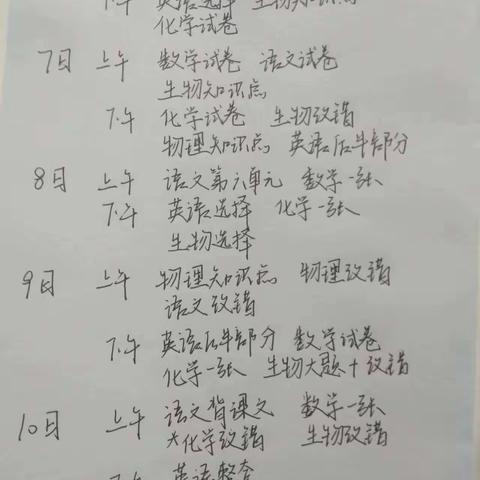 下午 英语选择 生物知识点
化学试卷
7日 上午 数学试卷 语文试卷
生物知识点
下午 化学试卷 生物改错
物理知识点 英语后半部分
8日 上午 语文第六单元 数学一张
下午 英语选择 化学一张
生物选择
9日 上午 物理知识点 物理改错
语文改错
下午 英语后半部分 数学试卷
化学一张 生物大题+改错
10日 上午 语文背课文 数学一张
化学改错 生物改错
下午 英语整套